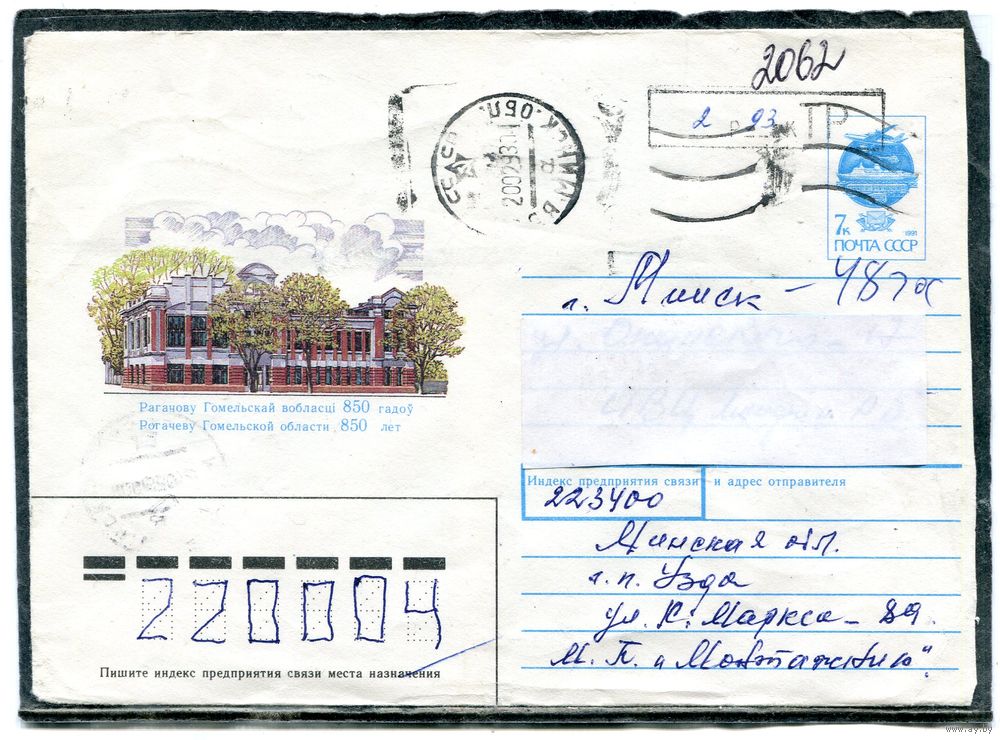 2062
2 93
7к
1991
ПОЧТА СССР
г. Минск - 48
Рагачову Гомельскай вобласці 850 гадоў
Рогачеву Гомельской области 850 лет
Индекс предприятия связи и адрес отправителя
223400
Минская обл.
г.п. Узда
ул. К. Маркса - 89
М.П. "Монтажник"
220004
Пишите индекс предприятия связи места назначения
www.ay.by